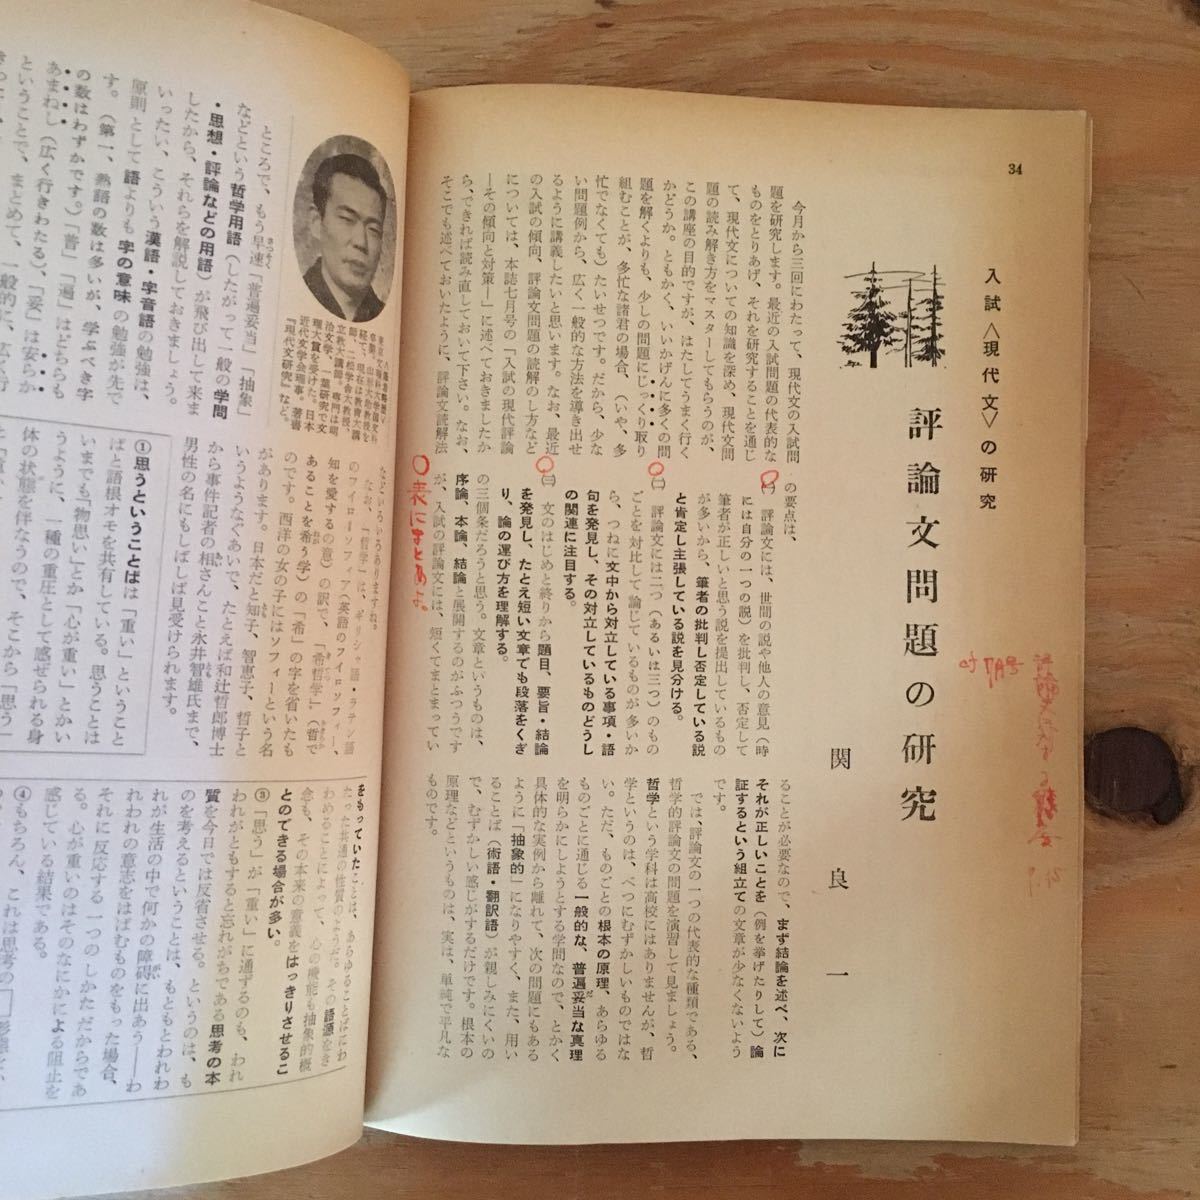 34
入試〈現代文〉の研究
評論文問題の研究
関良一
今月から三回にわたって、現代文の入試問
題を研究します。最近の入試問題の代表的な
ものをとりあげ、それを研究することを通じ
て、現代文についての知識を深め、現代文問
題の読み解き方をマスターしてもらうのが、
この講座の目的ですが、はたしてうまく行く
かどうか。ともかく、いいかげんに多くの問
題を解くよりも、少しの問題にじっくり取り
組むことが、多忙な諸君の場合、（いや、多
忙でなくても）たいせつです。だから、少な
い問題例から、広く一般的な方法を導き出せ
るように講義したいと思います。なお、最近
の入試の傾向、評論文問題の読解のし方など
については、本誌七月号の「入試の現代評論
―その傾向と対策―」に述べておきましたか
ら、できれば読み直しておいて下さい。なお、
そこでも述べておいたように、評論文読解法
の要点は、
㈠　評論文には、世間の説や他人の意見（時
には自分の一つの説）を批判し、否定して
筆者が正しいと思う説を提出しているもの
が多いから、筆者の批判し否定している説
と肯定し主張している説を見分ける。
㈡　評論文には二つ（あるいは三つ）のもの
ごとを対比して論じているものが多いか
ら、つねに文中から対立している事項・語
句を発見し、その対立しているものどうし
の関連に注目する。
㈢　文のはじめと終りから題目、要旨・結論
を発見し、たとえ短い文章でも段落をくぎ
り、論の運び方を理解する。
の三個条だろうと思う。文章というものは、
序論、本論、結論と展開するのがふつうです
が、入試の評論文には、短くてまとまってい
表にまとめよ。
ることが必要なので、まず結論を述べ、次に
それが正しいことを（例を挙げたりして）論
証するという組立ての文章が少なくないよう
です。
では、評論文の一つの代表的な種類である、
哲学的評論文の問題を演習して見ましょう。
哲学という学科は高校にはありませんが、哲
学というのは、べつにむずかしいものではな
い。ただ、ものごとの根本の原理、あらゆる
ものごとに通じる一般的な、普遍妥当な真理
を明らかにしようとする学問なので、とかく
具体的な実例から離れて、次の問題にもある
ように「抽象的」になりやすく、また、用い
ることば（術語・翻訳語）が親しみにくいの
で、むずかしい感じがするだけです。根本の
原理などというものは、実は、単純で平凡な
ものです。
経て、現在は教育大講
師、二松学舎大教授、
立教大講師。専門は明
治文学、一葉研究で文
理大賞を受けた。日本
近代文学会理事。著書
『現代文研究』など。
ところで、もう早速「普遍妥当」「抽象」
などという哲学用語（したがって一般の学問
・思想・評論などの用語）が飛び出して来ま
したから、それらを解説しておきましょう。
いったい、こういう漢語・字音語の勉強は、
原則として語よりも字の意味の勉強が先で
す。（第一、熟語の数は多いが、学ぶべき字
の数はわずかです。）「普」「遍」はどちらも
あまねし（広く行きわたる）、「妥」は安らか
ということで、まとめて、一般的に、広く行
なお、「哲学」は、ギリシャ語・ラテン語
のフィローソフィア（英語のフイロソフィー、
知を愛するの意）の訳で、「希哲学」（哲で
あることを希う学）の「希」の字を省いたも
のです。西洋の女の子にはソフィーという名
があります。日本だと知子、智恵子、哲子と
いうようなぐあいで、たとえば和辻哲郎博士
から事件記者の相さんこと永井智雄氏まで、
男性の名にもしばしば見受けられます。
①思うということばは「重い」ということ
ばと語根オモを共有している。思うことは
いまでも「物思い」とか「心が重い」とかい
うように、一種の重圧として感ぜられる身
体の状態を伴なうので、そこから「思う」
をもっていたことは、あらゆることばにわ
たった共通の性質のようだ。その語源をき
わめることによって、心の機能も抽象的概
念も、その本来の意義をはっきりさせるこ
とのできる場合が多い。
③「思う」が「重い」に通ずるのも、われ
われがともすると忘れがちである思考の本
質を今日では反省させる。というのは、も
のを考えるということは、もともとわれわ
れが生活の中で何かの障碍に出あう――わ
れわれの意志をはばむものをもった場合、
それに反応する一つのしかただからであ
る。心が重いのはそのなにかによる阻止を
感じている結果である。
④もちろん、これは思考の